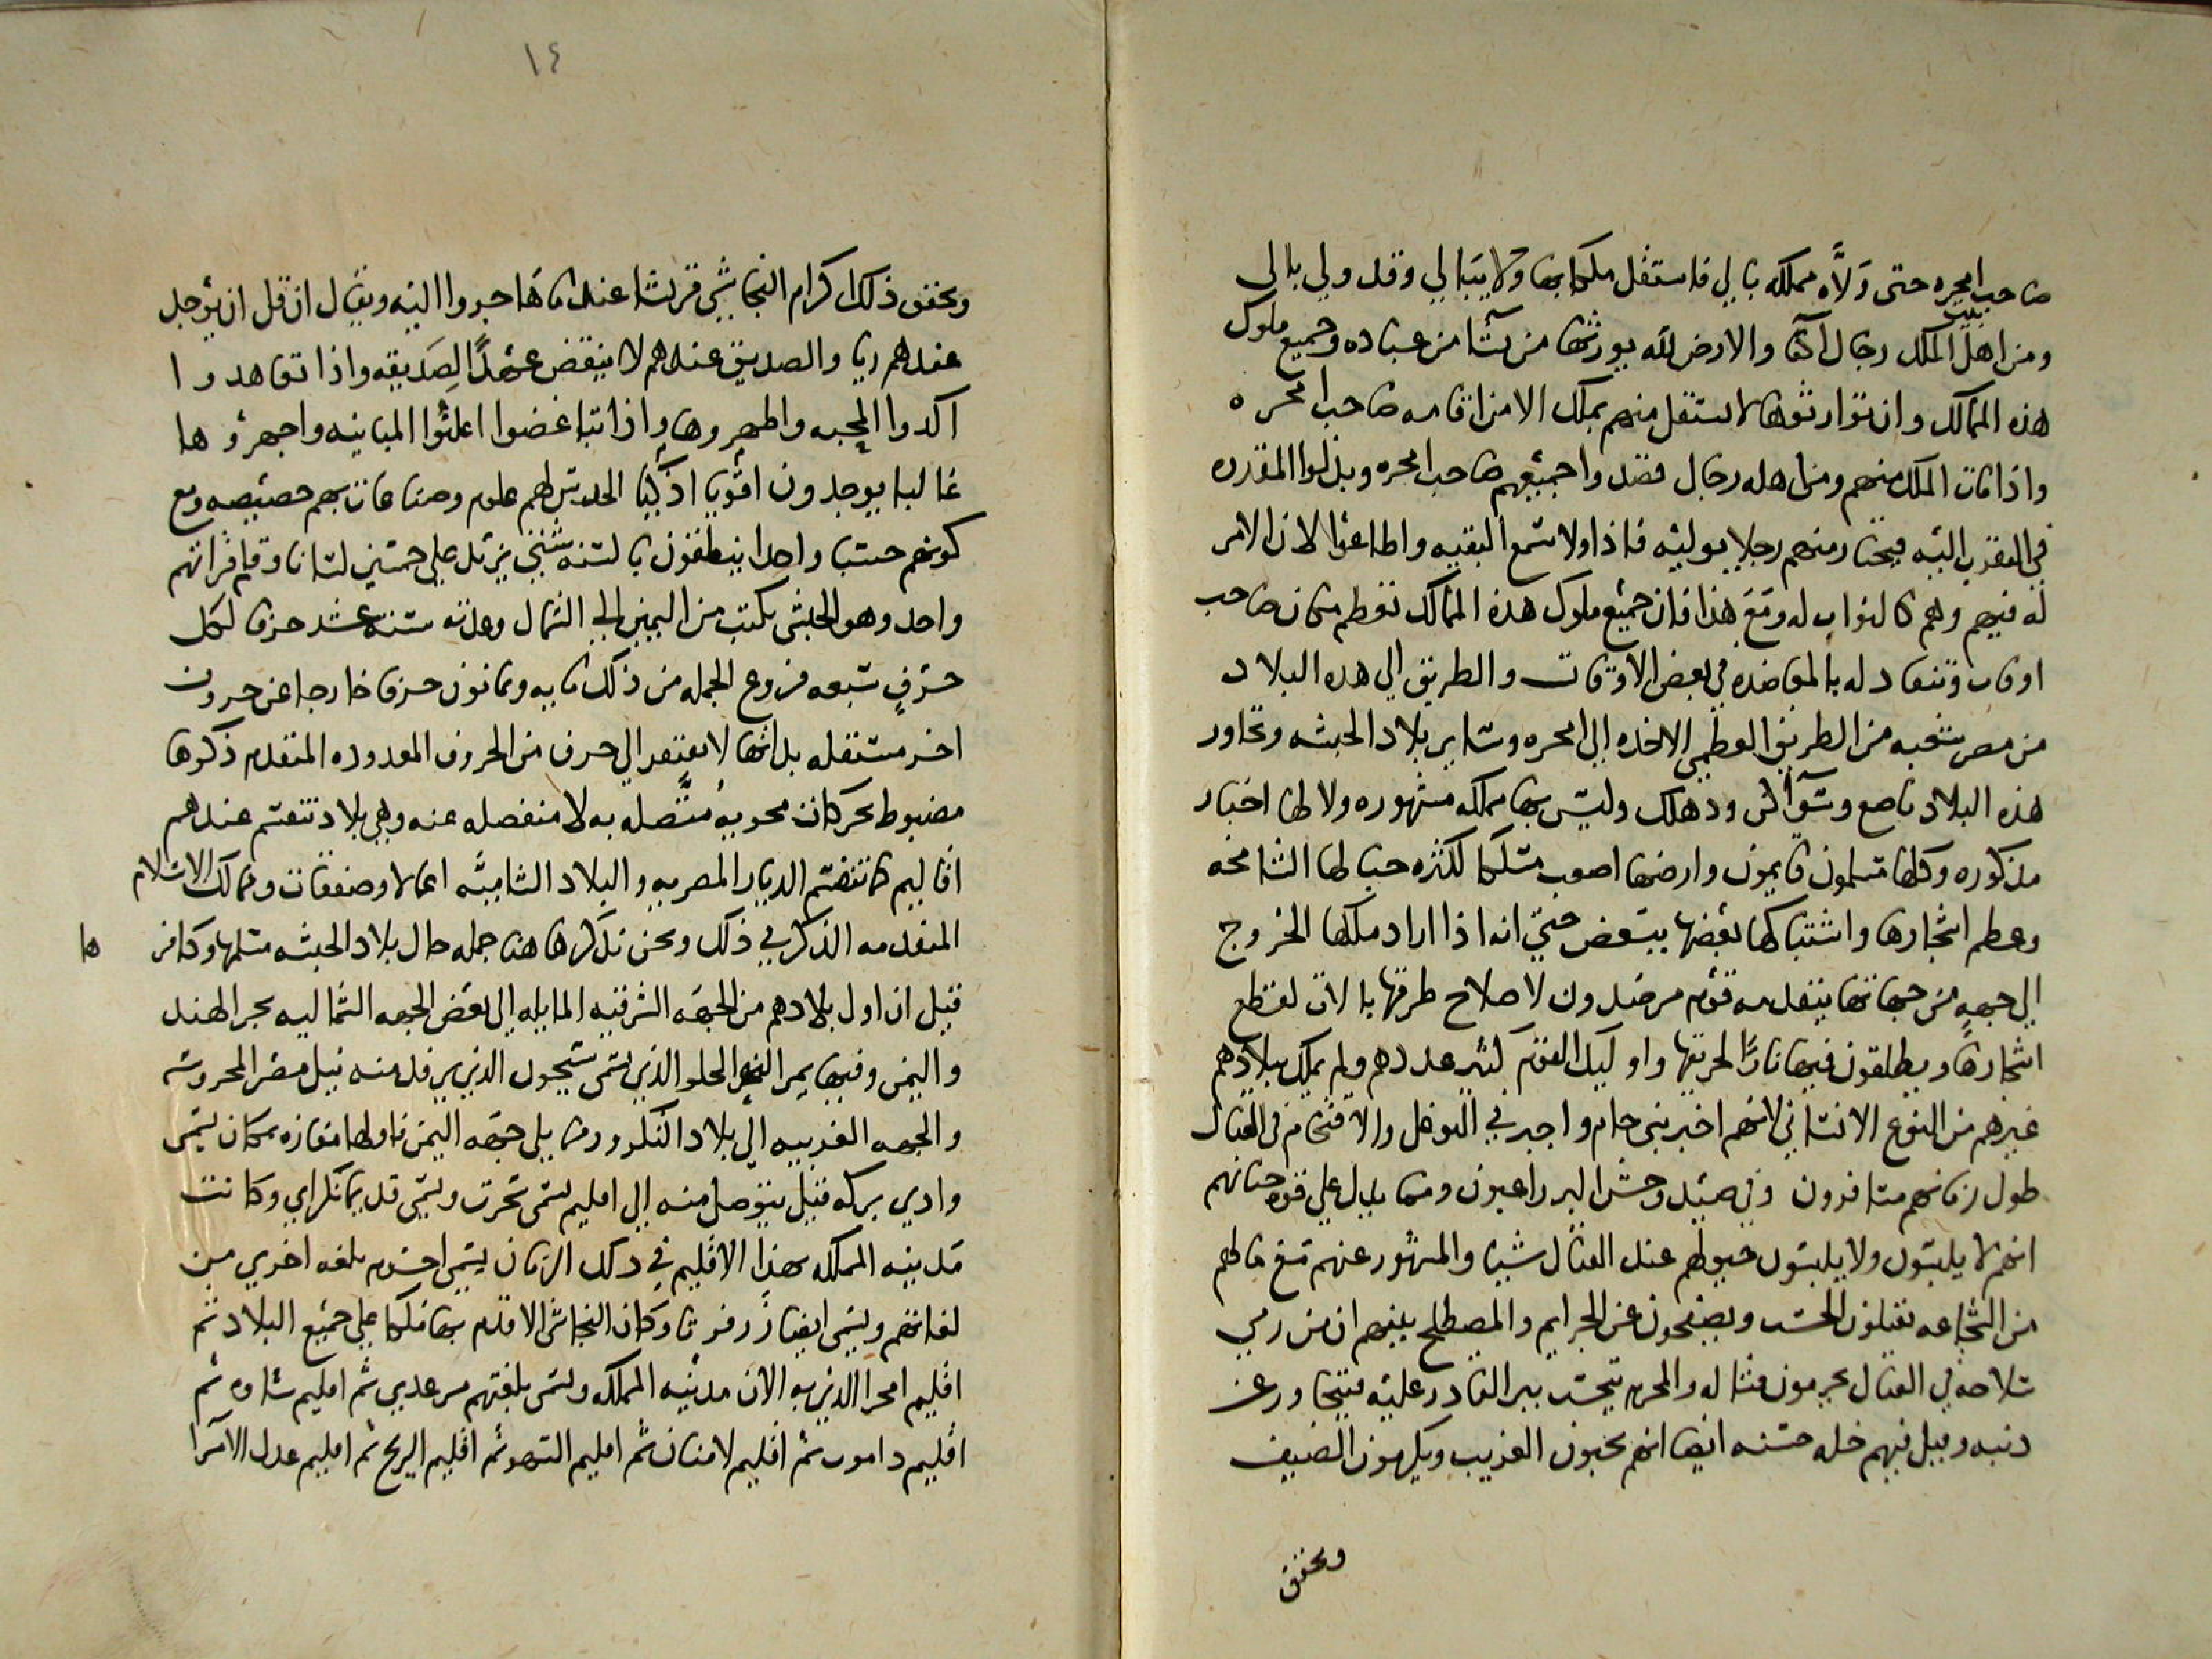 صاحب امحره حتى ولاه مملكه بالي فاستقل ملكا بها ولا يبالي وقد ولي بالي
ومن اهل بيت الملك رجال اكفا والارض لله يورثها من يشا من عباده وجميع ملوك
هذه الممالك وان توارثوها لا يستقل منهم بملك الا من اقامه صاحب امحره
واذا مات الملك منهم ومن اهله رجال قصدوا جميعهم صاحب امحره وبذلوا المقدره
في التقرب اليه فيختار منهم رجلا يوليه فاذا ولاه سمع البقيه واطاعوا لان الامر
له فيهم وهم كالنواب له ومع هذا فان جميع ملوك هذه الممالك تعظم مكان صاحب
اوفات وتنقاد له بالمعاضده في بعض الاوقات والطريق الي هذه البلاد
من مصر شعبه من الطريق العظمي الاخذه الي امحره وساير بلاد الحبشه وتجاور
هذه البلاد ناصع وسواكن ودهلك وليس بها مملكه مشهوره ولا لها اخبار
مذكوره وكلها مسلمون قايمون وارضها اصعب مسلكا لكثره جبالها الشامخه
وعظم اشجارها واشتباكها بعضها ببعض حتي انه اذا اراد ملكها الخروج
الي جهه من جهاتها يتقدمه قوم مرصدون لاصلاح طرقها بالات لقطع
اشجارها ويطلقون فيها نارًا لحريقها واوليك القوم كثير عددهم ولم يملك بلادهم
غيرهم من النوع الانساني لانهم اخير بني حام واجبر في التوغل والاقتحام في القتال
طول زمانهم مسافرون وفي صيد وحش البر راغبون ومما يدل علي قوه جنانهم
انهم لا يلبسون ولا يلبسون خيولهم عند القتال شيا والمشهور عنهم مع ما لهم
من الشجاعه يقبلون الحسب ويصفحون عن الجرايم والمصطلح بينهم ان من رمي
سلاحه في القتال يحرمون قتاله والمجرم يحسب بين القادر عليه فيتجاوز عن
ذنبه وقيل فيهم خله حسنه ايضا انهم يحبون الغريب ويكرمون الضيف
ويحقق
١٤
ويحقق ذلك اكرام النجاشي قريشا عندما هاجروا اليه ويقال ان قل ان يوجد
عندهم ريا والصديق عندهم لا ينقض عهدًا لصديقه واذا تعاهدوا
اكدوا المحبه واظهروها واذا تباغضوا اعلنوا المباينه واجهروها
غالبا يوجدون اقويا اذكيا الحدس لهم علوم وصناعات بهم خصيصه ومع
كونهم جنسا واحدا ينطقون بالسنه شتي يزيد علي خمسين لسانا وقلم قراتهم
واحد وهو الحبشي يكتب من اليمين الي الشمال وعدته سته عشر حرفا لكل
حرف سبعه فروع الجمله من ذلك مايه وثمانون حرفا خارجا عن حروف
اخر مستقله بذاتها لا تفتقر الي حرف من الحروف المعدوده المتقدم ذكرها
مضبوط بحركات نحويه متصله به لا منفصله عنه وهي بلاد تنقسم عندهم
اقاليم كما تنقسم الديار المصريه والبلاد الشاميه اعمالا وصفقات وممالك الاسلام
المتقدمه الذكر في ذلك ونحن نذكر هاهنا جمله حال بلاد الحبشه مسلمها وكافرها
قيل ان اول بلادهم من الجهه الشرقيه المايله الي بعض الجهه الشماليه بحر الهند
واليمن وفيها يمر النهر الحلو الذي يسمي سيحون الذي يرفد منه نيل مصر المحروسه
والجهه الغربيه الي بلاد التكرور ومما يلي جهه اليمن فاولها مفازه بمكان يسمي
وادي بركه قيل يتوصل منه الي اقليم يسمي سحرت ويسمي قديما تكراي وكانت
مدينه المملكه بهذا الاقليم في ذلك الزمان يسمي اخشرم بلغه اخري من
لغاتهم ويسمي ايضا زرفرتا وكان النجاشي الاقدم بها ملكا علي جميع البلاد ثم
اقليم امحرا الذي به الان مدينه المملكه ويسمي بلغتهم مرعدي ثم اقليم شاوه ثم
اقليم داموت ثم اقليم لامنان ثم اقليم السهو ثم اقليم الزنج ثم اقليم عدل الامرا